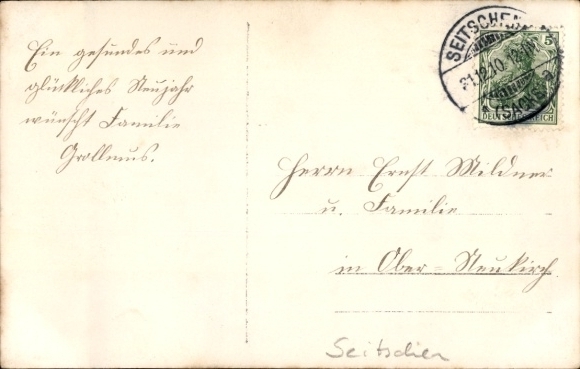 Ein gesundes und
glückliches Neujahr
wünscht Familie
Grollmus.
SEITSCHEN
31.12.10.
(SACHSEN)
5
DEUTSCHES REICH
Herrn Ernst Mildner
u. Familie
in Ober-Neukirch
Seitschen